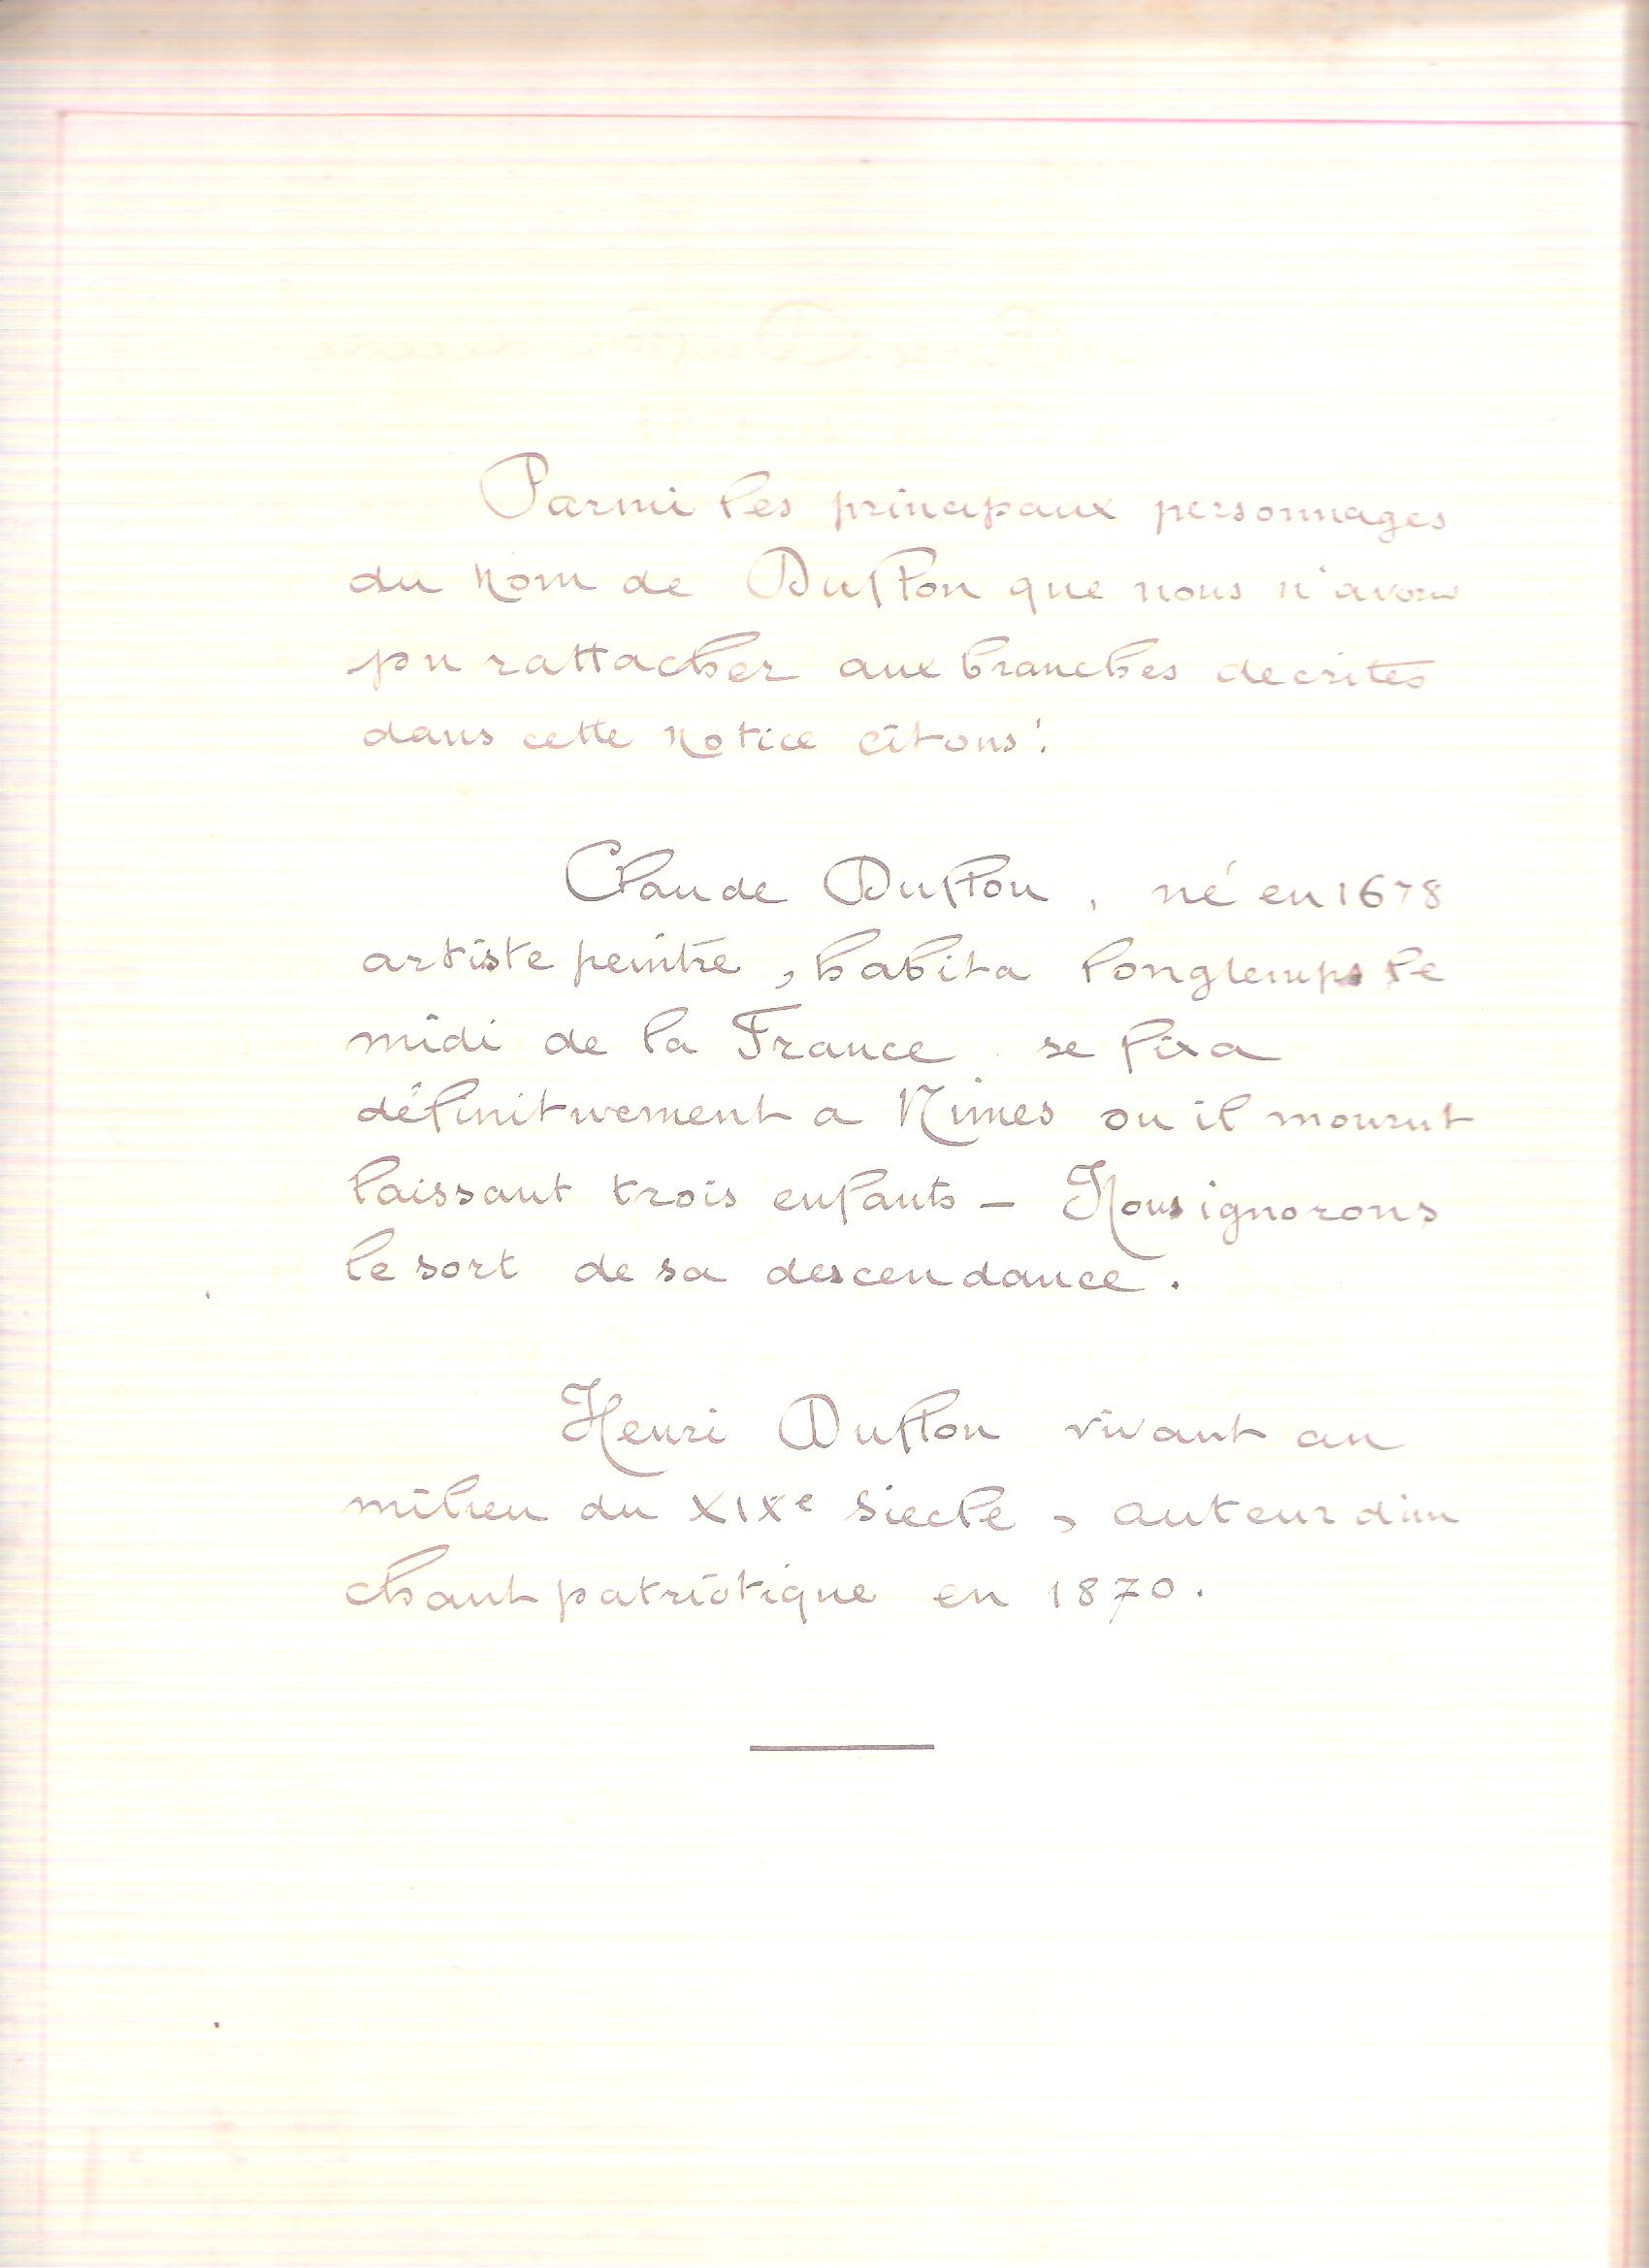 Parmi les principaux personnages
du nom de Duflon que nous n'avons
pu rattacher aux branches decrites
dans cette notice citons :
Claude Duflon, né en 1678
artiste peintre, habita longtemps le
midi de la France se fixa
définitivement a Nimes ou il mourut
laissant trois enfants - Nous ignorons
le sort de sa descendance.
Henri Duflon vivant au
milieu du XIXe siecle, auteur d'un
chant patriotique en 1870.